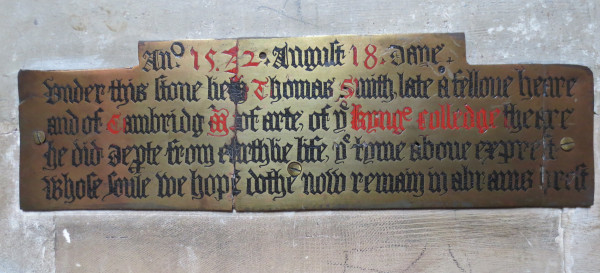 An⁰ 1572 · August 18 · Daye ·
Under this stone lieth Thomas Smith late a fellowe heare
and of Cambridg Mʳ of arte, of yᵉ Kynge colledge theare
he did depte from earthlie life, yᵉ tyme above exprest
Whose soule we hope dothe now remain in abrams brest